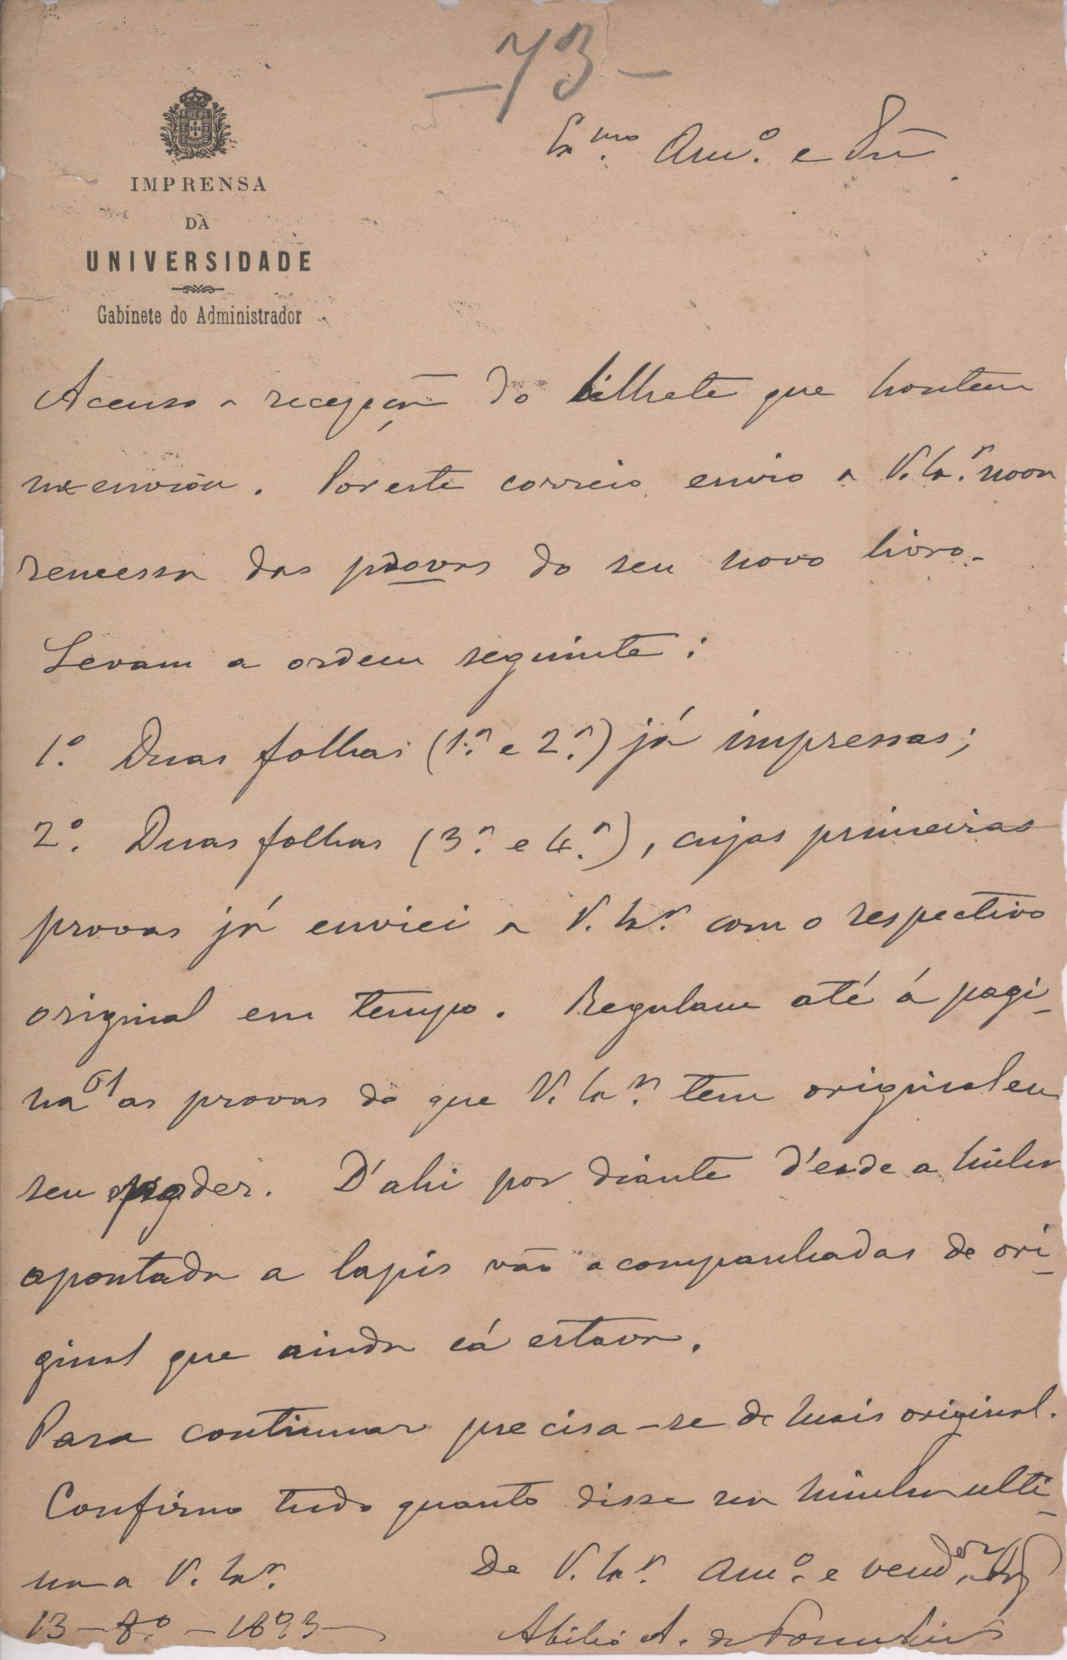 -73-
Ex.mo Am.o e Sñr.
IMPRENSA
DA
UNIVERSIDADE
Gabinete do Administrador
Acuso a recepção do bilhete que hontem
me enviou. Por este correio envio a V. Ex.a nova
remessa das provas do seu novo livro.
Levam a ordem seguinte:
1.o Duas folhas (1.a e 2.a) já impressas;
2.o Duas folhas (3.a e 4.a), cujas primeiras
provas já enviei a V. Ex.a com o respectivo
original em tempo. Regulam até á pagi-
na 61 as provas do que V. Ex.a tem original em
seu poder. D'ahi por diante d'esde a linha
apontada a lapis vão acompanhadas de ori-
ginal que ainda cá estava.
Para continuar precisa-se de mais original.
Confirmo tudo quanto disse na minha ulti-
ma a V. Ex.a De V. Ex.a Am.o e vend.or
13-8.o-1893
Abilio A. da